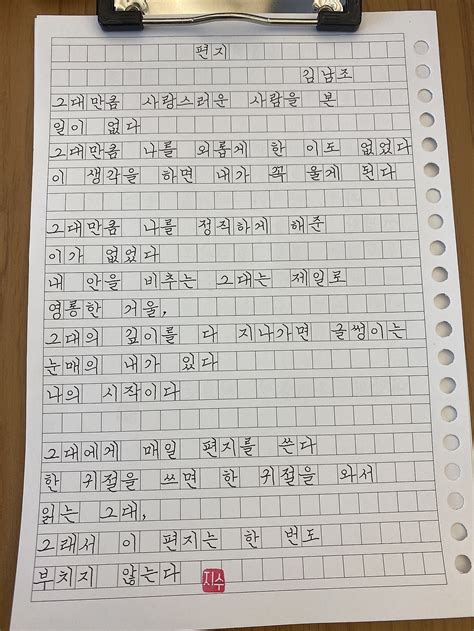 편지
김남조
그대만큼 사랑스러운 사람을 본
일이 없다
그대만큼 나를 외롭게 한 이도 없었다
이 생각을 하면 내가 꼭 울게 된다
그대만큼 나를 정직하게 해준
이가 없었다
내 안을 비추는 그대는 제일로
영롱한 거울,
그대의 깊이를 다 지나가면 글썽이는
눈매의 내가 있다
나의 시작이다
그대에게 매일 편지를 쓴다
한 귀절을 쓰면 한 귀절을 와서
읽는 그대,
그래서 이 편지는 한 번도
부치지 않는다 지수